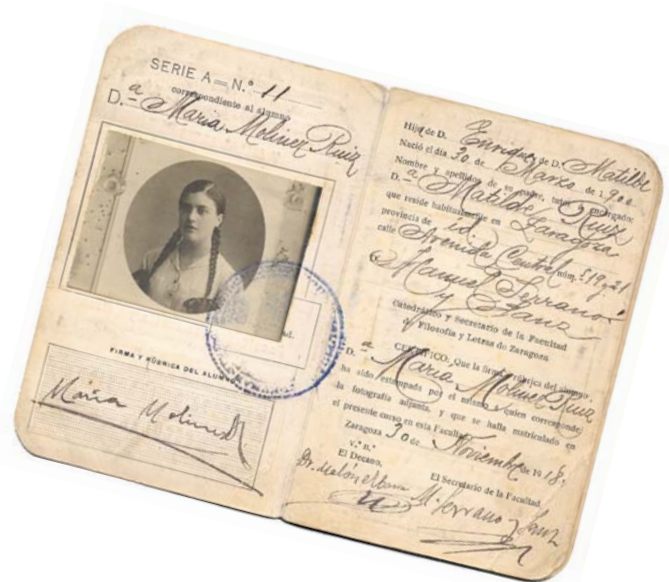 SERIE A = N.º 11
correspondiente al alumno
D.ª Maria Moliner Ruiz
FIRMA Y RÚBRICA DEL ALUMNO
Maria Moliner R
Hija de D. Enrique y de D. Matilde
Nació el día 30 de Marzo de 1900
Nombre y apellidos de su padre, tutor o encargado:
D.ª Matilde Ruiz
que reside habitualmente en Zaragoza
provincia de id.
calle Avenida Central núm. 19, 21
Manuel Serrano
y Sanz
Catedrático y Secretario de la Facultad
de Filosofía y Letras de Zaragoza
CERTIFICO: Que la firma y rúbrica del alumno
D.ª Maria Moliner Ruiz
ha sido estampada por el mismo, a quien corresponde
la fotografía adjunta, y que se halla matriculado en
el presente curso en esta Facultad.
Zaragoza 30 de Noviembre de 1918.
V.º B.º
El Decano,
El Secretario de la Facultad,
M. Serrano y Sanz